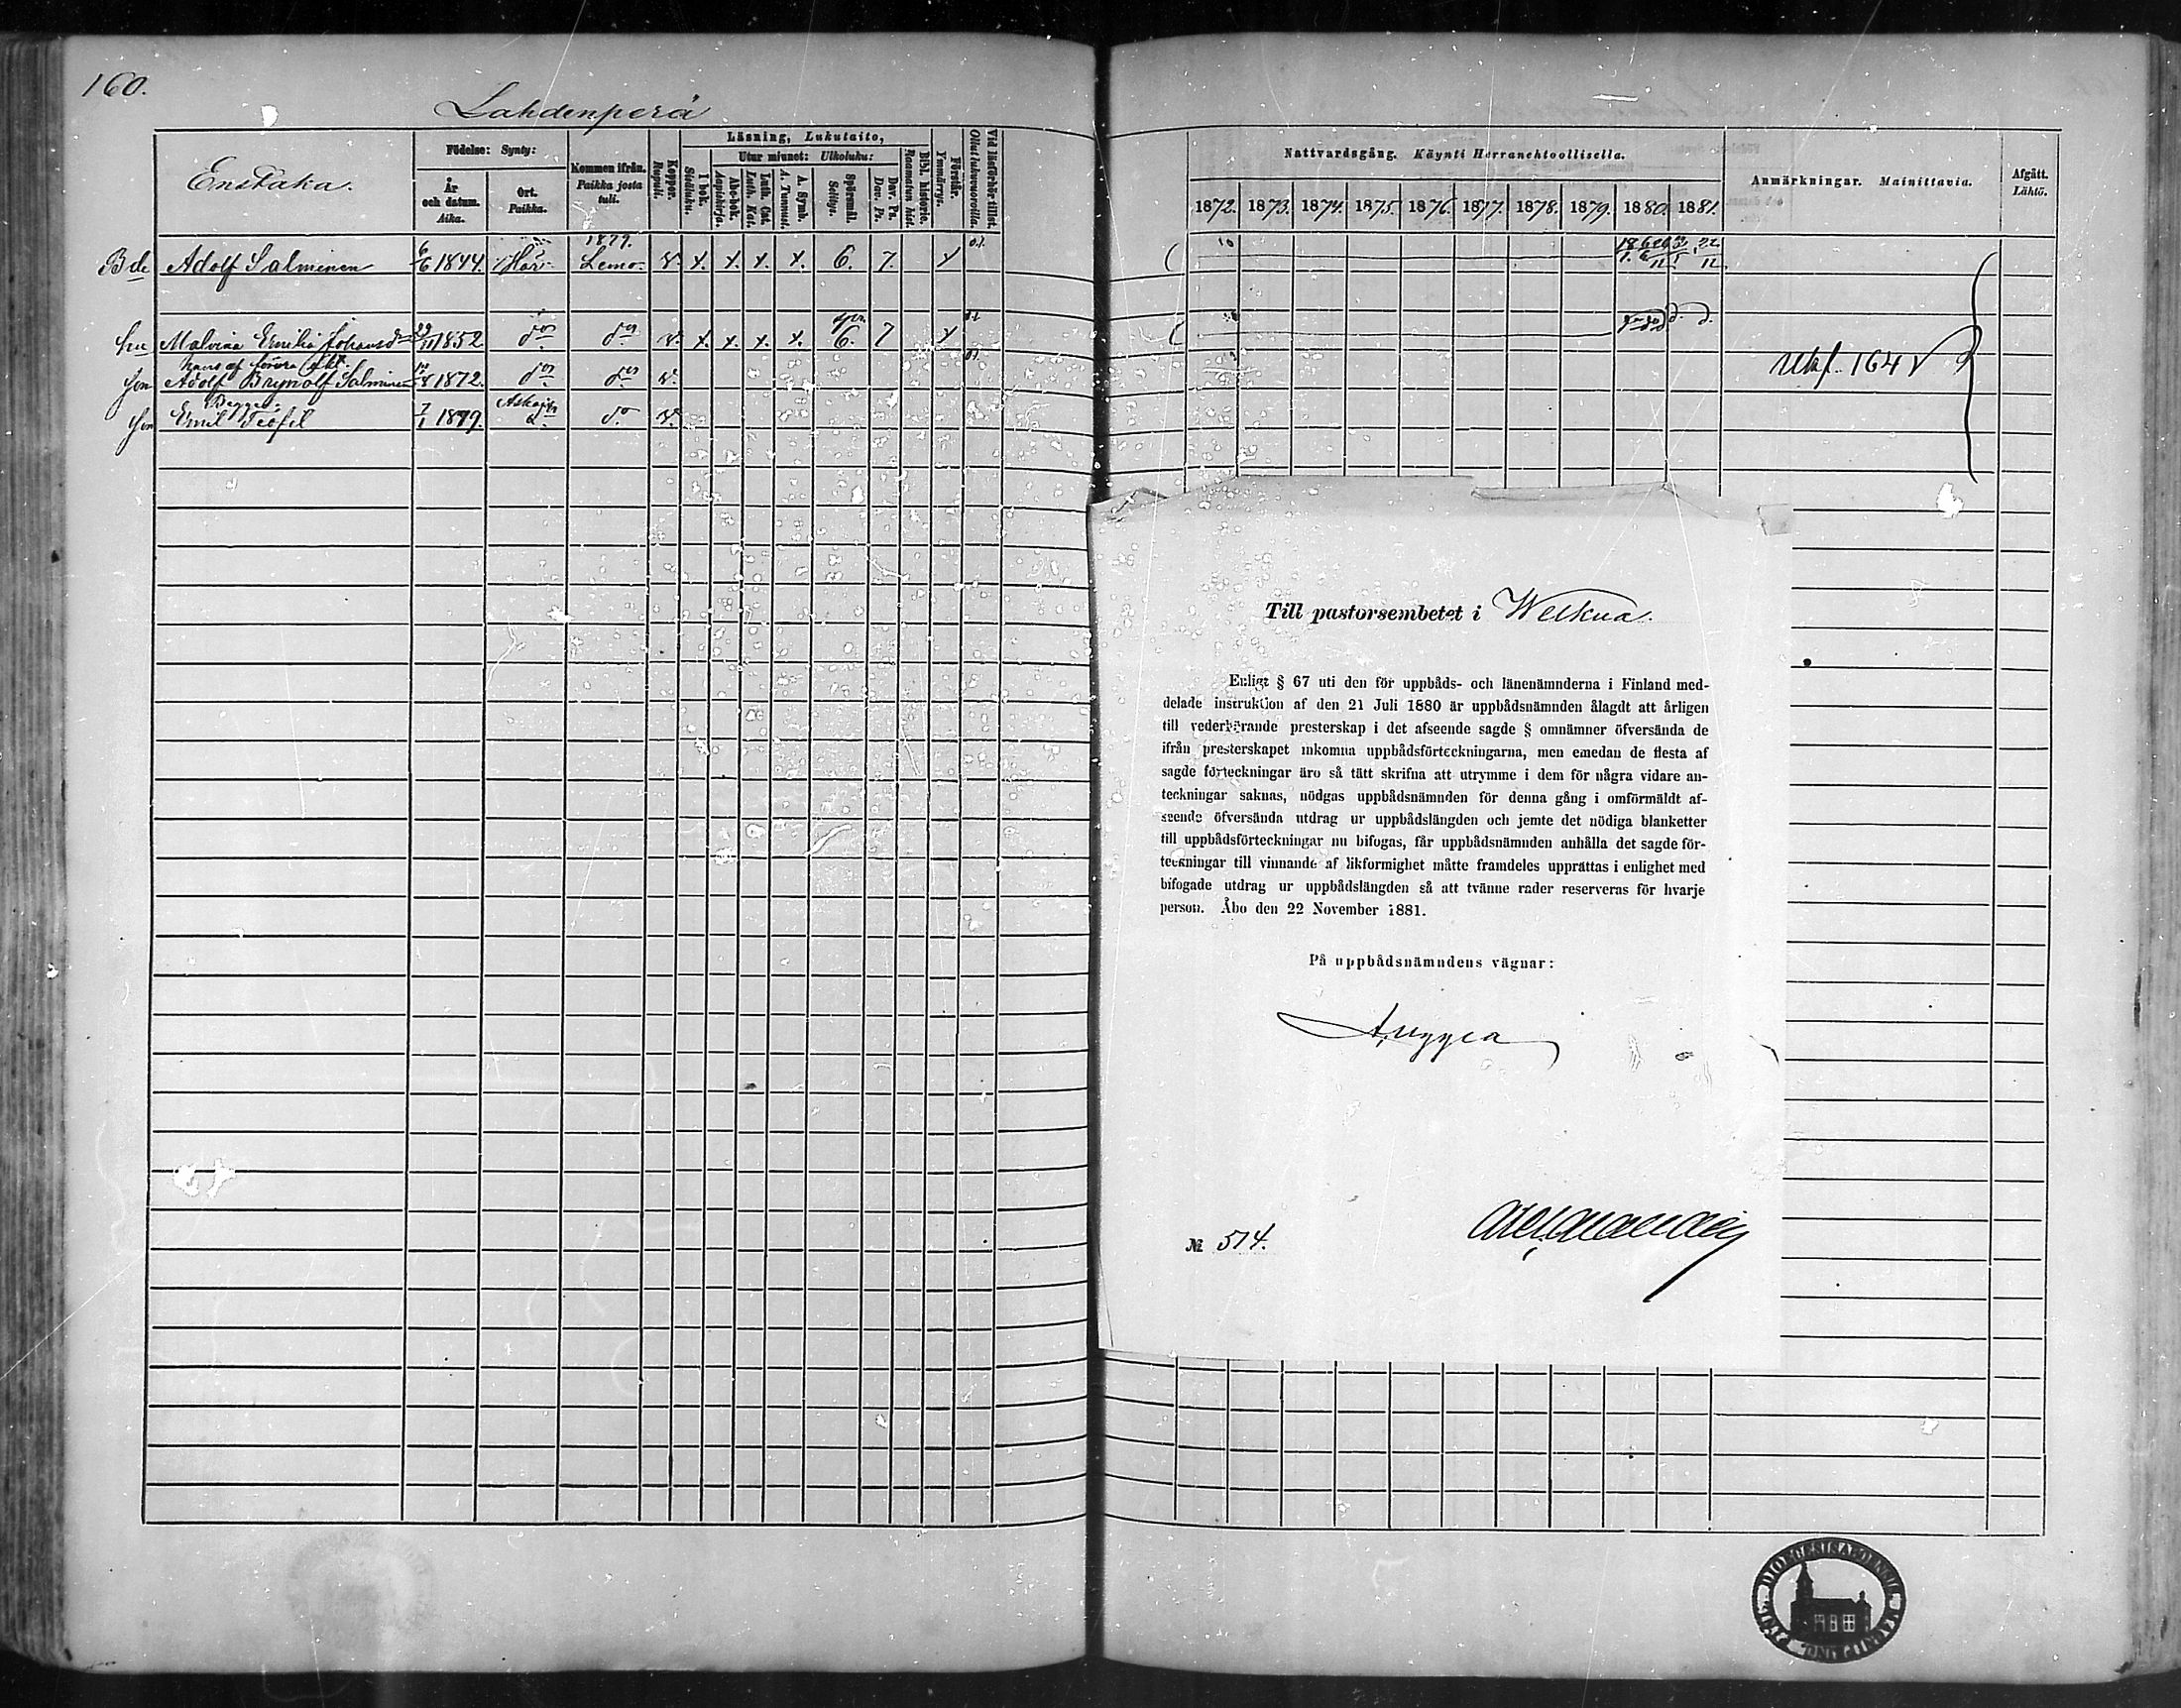 160.
Lahdenperä
Enstaka.
Födelse: Synty:
År och datum. Aika.
Ort. Paikka.
Kommen ifrån. Paikka josta tuli.
Koppor. Rupuli.
Läsning, Lukutaito,
I bok. Sisäluku.
Utur minnet: Ulkoluku:
Abc-bok. Aapiskirja.
Luth. Cat. Luth. Kat.
A. Symb. A. Tunnust.
Spörsmål. Selitys.
Dav. Ps. Dav. Ps.
Bibl. historie. Raamatun hist.
Förstår. Ymmärrys.
Vid läsförhör tillst. Ollut lukuvuoroilla.
Adolf Salminen 6/6 1844. Lemo. 1879. v. x. x. x. x. 6. 7. x
Malvina Emilia Johansdr 1852 do do v. x. x. x. x. 6. 7 x
Adolf Brynolf Salminen 1872. do do v.
Begges:
Son Emil Teofil 7/1 1879. Askais do v.
Nattvardsgång. Käynti Herranehtoollisella.
1872. 1873. 1874. 1875. 1876. 1877. 1878. 1879. 1880. 1881.
Anmärkningar. Mainittavia.
Afgått. Lähtö.
164
Till pastorsembetet i Welkua.
Enligt § 67 uti den för uppbåds- och länenämnderna i Finland med-
delade instruktion af den 21 Juli 1880 är uppbådsnämnden ålagdt att årligen
till vederbörande presterskap i det afseende sagde § omnämner öfversända de
ifrån presterskapet inkomna uppbådsförteckningarna, men emedan de flesta af
sagde förteckningar äro så tätt skrifna att utrymme i dem för några vidare an-
teckningar saknas, nödgas uppbådsnämnden för denna gång i omförmäldt af-
seende öfversända utdrag ur uppbådslängden och jemte det nödiga blanketter
till uppbådsförteckningar nu bifogas, får uppbådsnämnden anhålla det sagde för-
teckningar till vinnande af likformighet måtte framdeles upprättas i enlighet med
bifogade utdrag ur uppbådslängden så att tvänne rader reserveras för hvarje
person. Åbo den 22 November 1881.
På uppbådsnämndens vägnar:
№ 514.